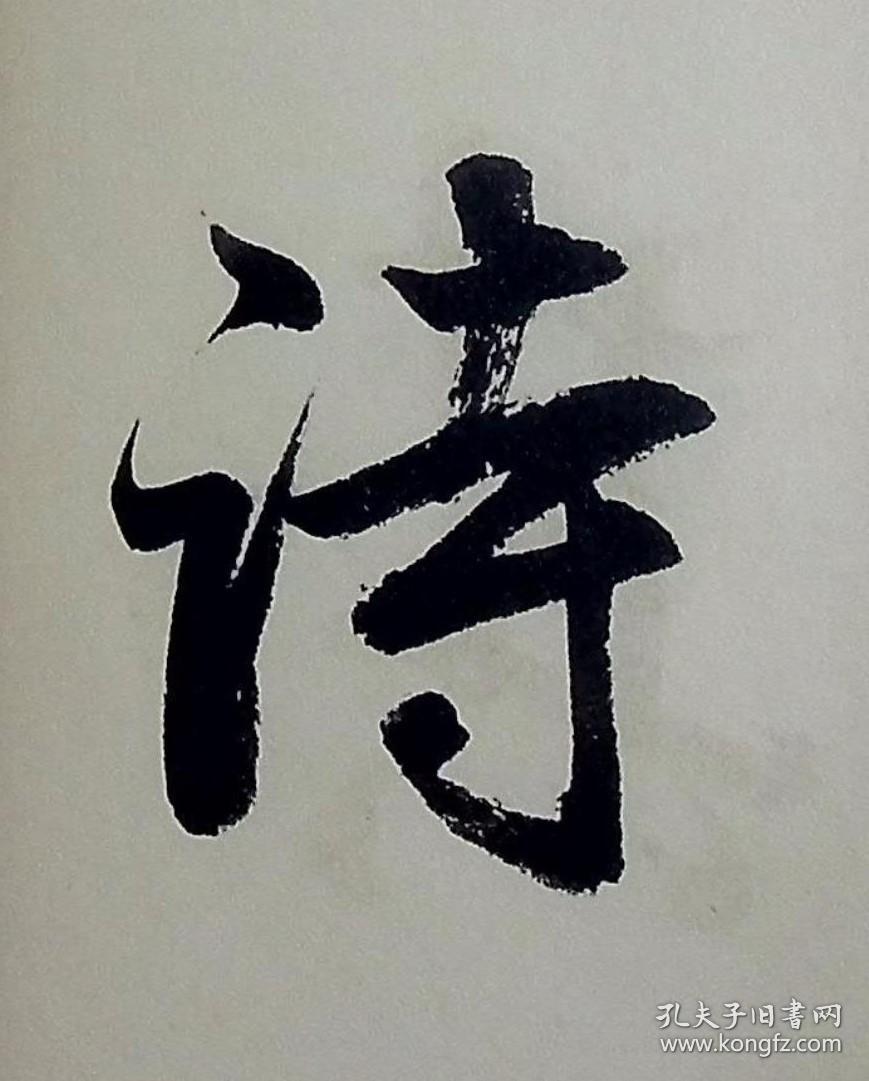 诗
孔夫子旧書网
www.kongfz.com